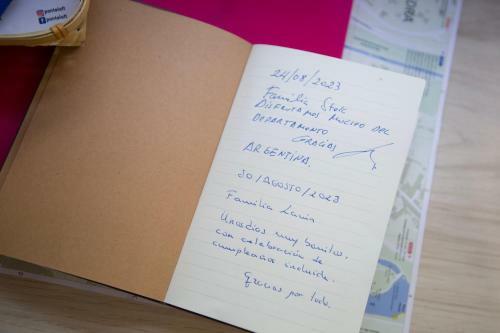 ponteloft
ponteloft
24/08/2023
Familia
DISFRUTAMOS MUCHO DEL
DEPARTAMENTO
GRACIAS
ARGENTINA.
30/AGOSTO/2023
Familia
Unos dias muy bonitos,
con celebración de
cumpleaños incluida.
Gracias por todo.